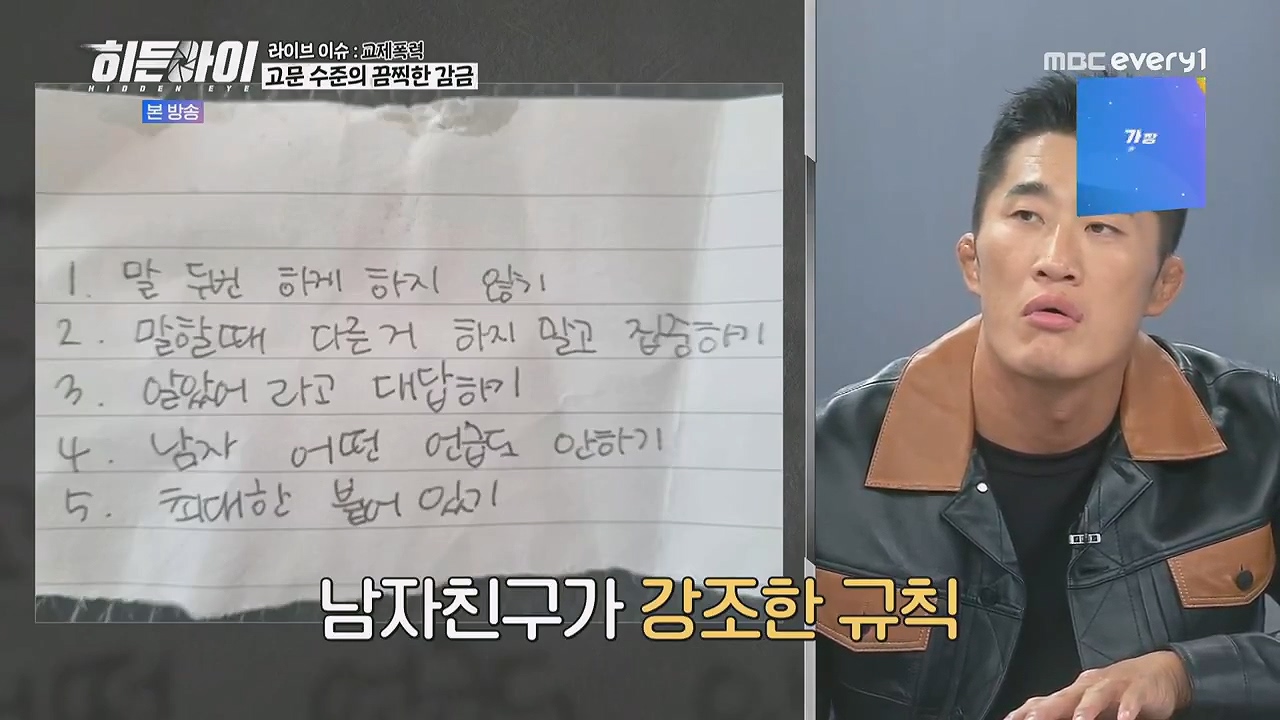 히든아이
HIDDEN EYE
라이브 이슈 : 교제폭력
고문 수준의 끔찍한 감금
본 방송
MBC every1
가장
1. 말 두번 하게 하지 않기
2. 말할때 다른거 하지 말고 집중하기
3. 알았어 라고 대답하기
4. 남자 어떤 언급도 안하기
5. 최대한 붙어 있기
남자친구가 강조한 규칙